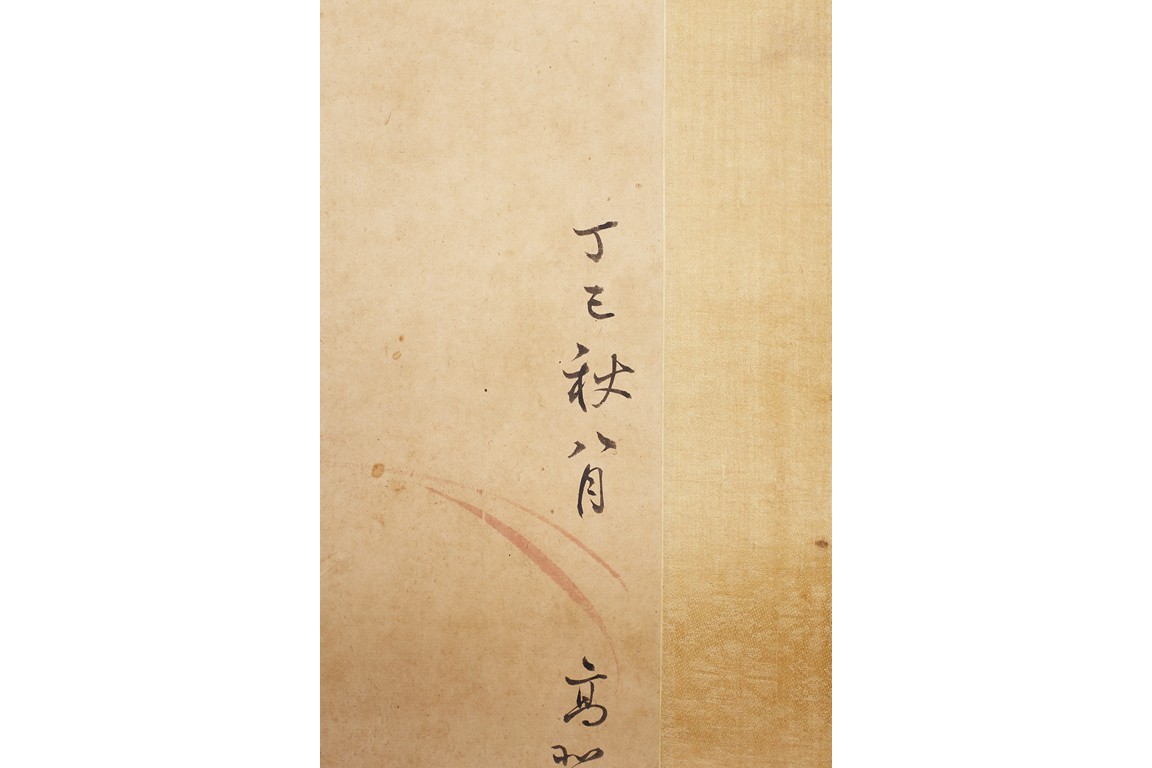 丁巳秋八月 高